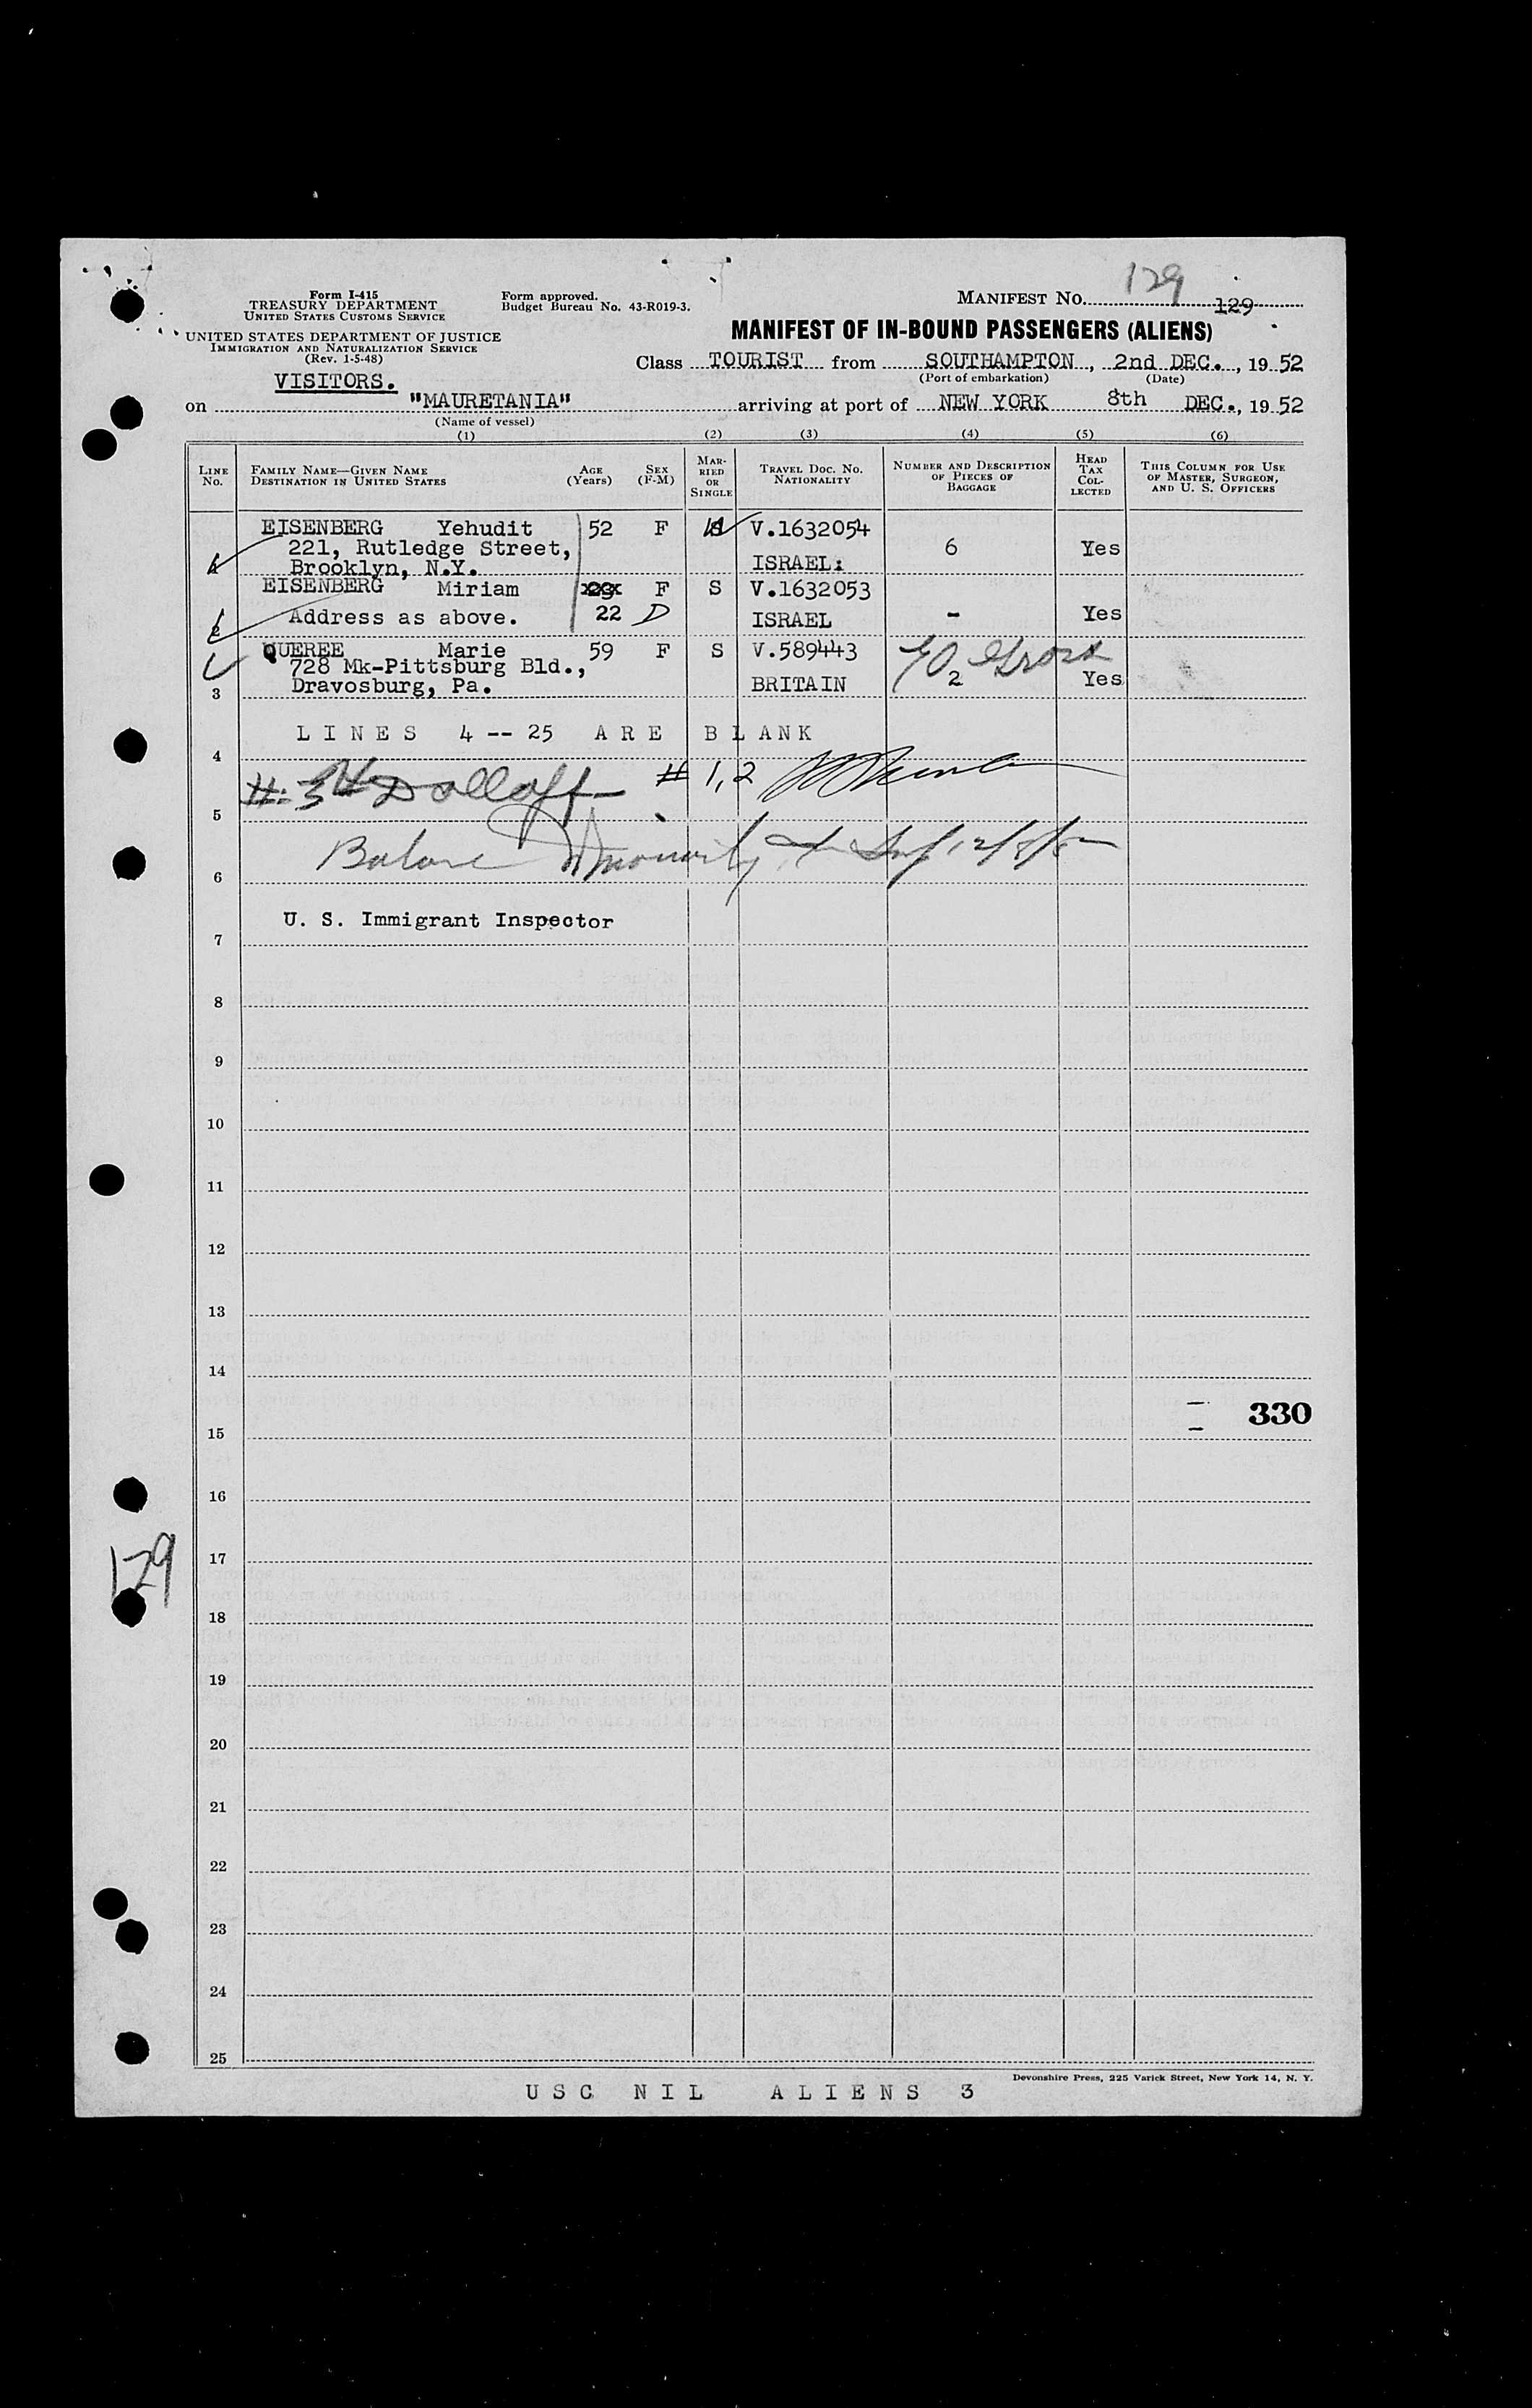 129
Form I-415
TREASURY DEPARTMENT
UNITED STATES CUSTOMS SERVICE
Form approved.
Budget Bureau No. 43-R019-3.
MANIFEST NO. 129
UNITED STATES DEPARTMENT OF JUSTICE
IMMIGRATION AND NATURALIZATION SERVICE
(Rev. 1-5-48)
MANIFEST OF IN-BOUND PASSENGERS (ALIENS)
Class TOURIST from SOUTHAMPTON, 2nd DEC., 19 52
(Port of embarkation) (Date)
VISITORS.
on "MAURETANIA" arriving at port of NEW YORK 8th DEC., 19 52
(Name of vessel)
(1) (2) (3) (4) (5) (6)
LINE No. FAMILY NAME—GIVEN NAME DESTINATION IN UNITED STATES AGE (Years) SEX (F-M) MARRIED OR SINGLE TRAVEL DOC. NO. NATIONALITY NUMBER AND DESCRIPTION OF PIECES OF BAGGAGE HEAD TAX COLLECTED THIS COLUMN FOR USE OF MASTER, SURGEON, AND U. S. OFFICERS
EISENBERG Yehudit 52 F V.1632054
221, Rutledge Street, 6 Yes
1 Brooklyn, N.Y. ISRAEL:
EISENBERG Miriam F S V.1632053
2 Address as above. 22 D ISRAEL - Yes
QUEREE Marie 59 F S V.589443
728 Mk-Pittsburg Bld.,
3 Dravosburg, Pa. BRITAIN 2 Yes
LINES 4 -- 25 ARE BLANK
4
# 3 # 1,2
5
12/8/52
6
U. S. Immigrant Inspector
7
8
9
10
11
12
13
14
330
15
16
129
17
18
19
20
21
22
23
24
25
Devonshire Press, 225 Varick Street, New York 14, N. Y.
USC NIL ALIENS 3